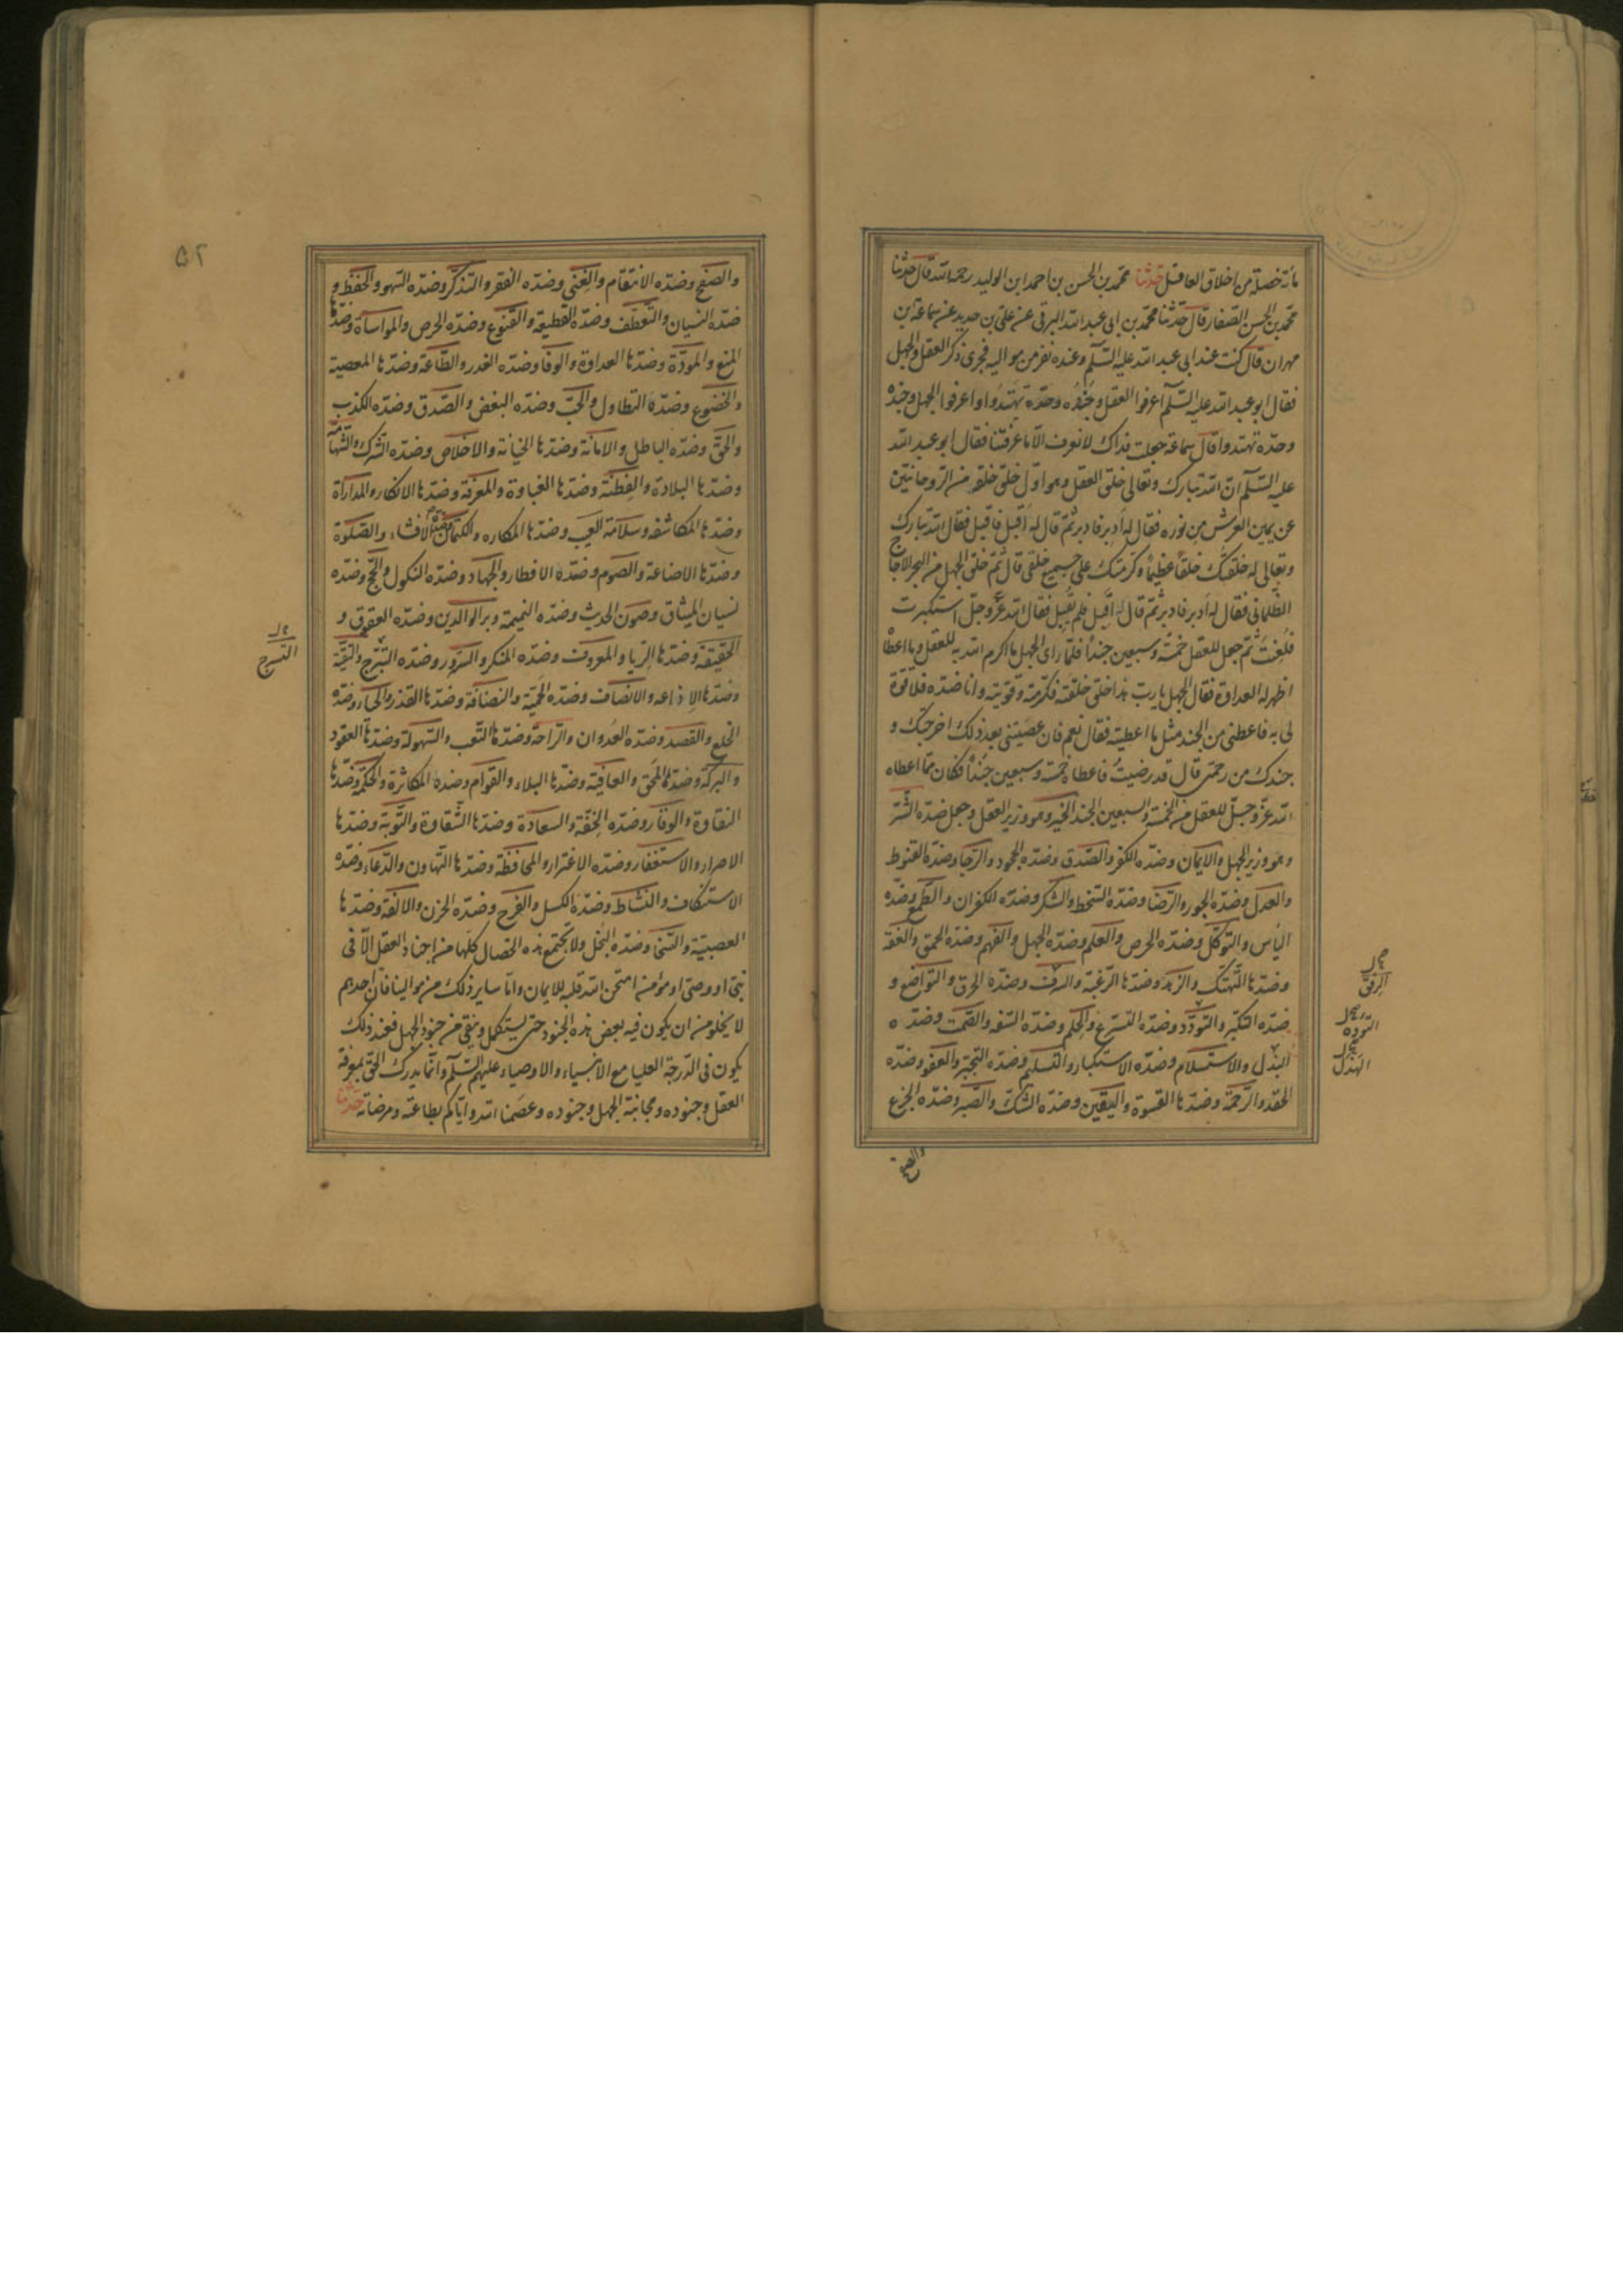 مائة خصلة من اخلاق العاقل حدثنا محمد بن الحسن بن احمد ابن الوليد رحمه الله قال حدثنا
محمد بن الحسن الصفار قال حدثنا محمد بن ابى عبد الله البرقى عن على بن حديد عن سماعة بن
مهران قال كنت عند ابى عبد الله عليه السلام وعنده نفر من مواليه فجرى ذكر العقل والجهل
فقال ابو عبد الله عليه السلام اعرفوا العقل وجنده وحده تهتدوا واعرفوا الجهل وجنده
وحده تهتدوا قال سماعة جعلت فداك لا نعرف الا ما عرفتنا فقال ابو عبد الله
عليه السلام ان الله تبارك وتعالى خلق العقل وهو اول خلق خلقه من الروحانيين
عن يمين العرش من نوره فقال له ادبر فادبر ثم قال له اقبل فاقبل فقال الله تبارك
وتعالى له خلقتك خلقاً عظيماً وكرمتك على جميع خلقى قال ثم خلق الجهل من البحر الاجاج
الظلمانى فقال له ادبر فادبر ثم قال له اقبل فلم يقبل فقال الله عز وجل استكبرت
فلعنت ثم جعل للعقل خمسة وسبعين جنداً فلما راى الجهل ما اكرم الله به للعقل وما اعطاه
اظهر له العداوة فقال الجهل يا رب هذا خلق خلقته فكرمته وقويته وانا ضده فلا قوة
لى به فاعطنى من الجند مثل ما اعطيته فقال نعم فان عصيتنى بعد ذلك اخرجتك و
جندك من رحمتى قال قد رضيت فاعطاه خمسة وسبعين جنداً فكان مما اعطاه
الله عز وجل للعقل من الخمسة والسبعين الجند الخير وهو وزير العقل وجعل ضده الشر
وهو وزير الجهل والايمان وضده الكفر والصدق وضده الجحود والرجا وضده القنوط
والعدل وضده الجور والرضا وضده السخط والشكر وضده الكفران والطمع وضده
الياس والتوكل وضده الحرص والعلم وضده الجهل والفهم وضده الحمق والعفة
وضدها التهتك والزهد وضدها الرغبة والرفق وضده الخرق والتواضع و
ضده التكبر والتودد وضده التسرع والحلم وضده السفه والصمت وضده
البذل والاستسلام وضده الاستكبار والتسليم وضده التجبر والعفو وضده
الحقد والرحمة وضدها القسوة واليقين وضده الشك والصبر وضده الجزع
الرفق
التوده
الهذل
والصفح
۵۲
والصفح وضده الانتقام والغنى وضده الفقر والتذكر وضده السهو والحفظ و
ضده النسيان والتعطف وضده القطيعة والقنوع وضده الحرص والمواساة وضدها
المنع والمودة وضدها العداوة والوفا وضده الغدر والطاعة وضدها المعصية
والخضوع وضده التطاول والحب وضده البغض والصدق وضده الكذب
والحق وضده الباطل والامانة وضدها الخيانة والاخلاص وضده الشرك والشهامة
وضدها البلادة والفطنة وضدها الغباوة والمعرفة وضدها الانكار والمداراة
وضدها المكاشفة وسلامة الغيب وضدها المكاره والكتمان وضده الافشاء والصلوة
وضدها الاضاعة والصوم وضده الافطار والجهاد وضده النكول والحج وضده
نسيان الميثاق وصون الحديث وضده النميمة وبر الوالدين وضده العقوق و
الحقيقة وضدها الريا والمعروف وضده المنكر والستر وضده التبرج والتقية
وضدها الاذاعة والانصاف وضده الحمية والنظافة وضدها القذر والحياء وضده
الخلع والقصد وضده العدوان والراحة وضدها التعب والسهولة وضدها العقود
والبركة وضدها المحق والعافية وضدها البلاء والقوام وضده المكاثرة والحكمة وضدها
النقاوة والوقار وضده الخفة والسعادة وضدها الشقاوة والتوبة وضدها
الاصرار والاستغفار وضده الاغترار والمحافظة وضدها التهاون والدعاء وضده
الاستنكاف والنشاط وضده الكسل والفرح وضده الحزن والالفة وضدها
العصبية والسخى وضده البخل ولا تجتمع هذه الخصال كلها من اجناد العقل الا فى
نبى او وصى او مؤمن امتحن الله قلبه للايمان واما ساير ذلك من موالينا فان احدهم
لا يخلو من ان يكون فيه بعض هذه الجنود حتى يستكمل وينقى من جنود الجهل فعند ذلك
يكون فى الدرجة العليا مع الانبياء والاوصياء عليهم السلم وانما يدرك الحق بمعرفة
العقل وجنوده ومجانبة الجهل وجنوده وعصمنا الله واياكم بطاعته ومرضاته حدثنا